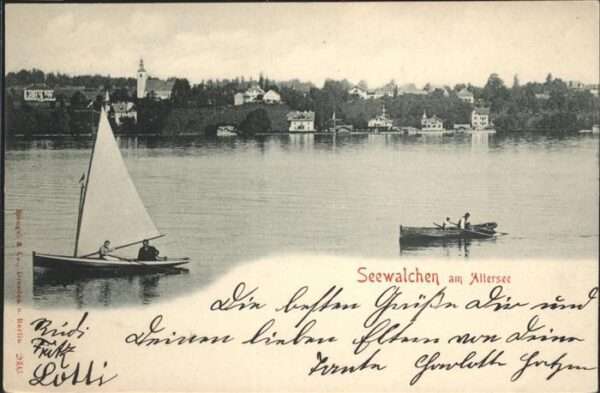 Seewalchen am Attersee
Die besten Grüße Dir und
Deinen lieben Eltern von Deiner
Tante Charlotte
Rudi
Fritz
Lotti
Stengel & Co., Dresden u. Berlin